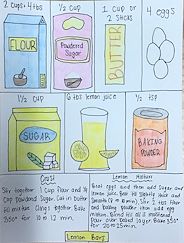 2 cups, 4 tbs
1/2 cup
1 cup or
2 sticks
4 eggs
FLOUR
Powdered
Sugar
BUTTER
1/2 cup
6 tbs lemon juice
1/2 tsp
SUGAR
BAKING
POWDER
Crust
Stir together 1 cup flour and 1/2
cup powdered sugar. Cut in butter
till mixture clings together. Bake
350° for 10 to 12 min.
Lemon Mixture
Beat eggs and then add sugar and
lemon juice. Beat till thick and
smooth (8 to 10 min). Stir 2 tbs flour
and baking powder then add egg
mixture. Blend till all is moistened.
Pour over baked layer. Bake 350°
for 20 to 25 min.
Lemon Bars